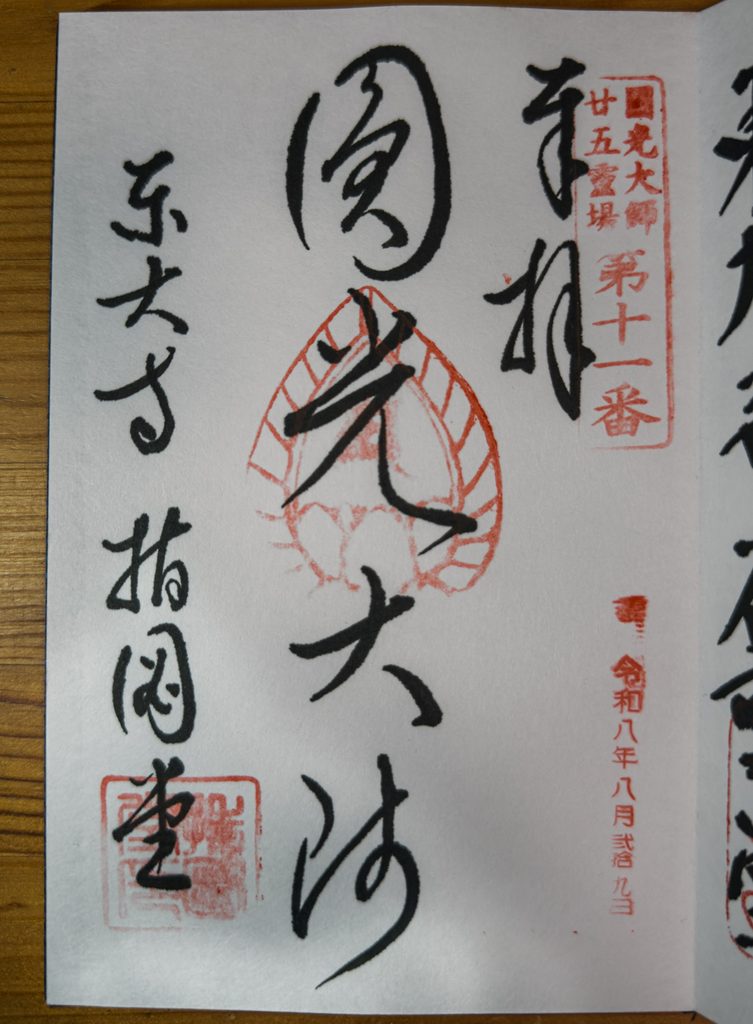 圓光大師
廿五靈場
第十一番
奉拝
令和八年八月弐拾九日
圓光大師
東大寺 指図堂